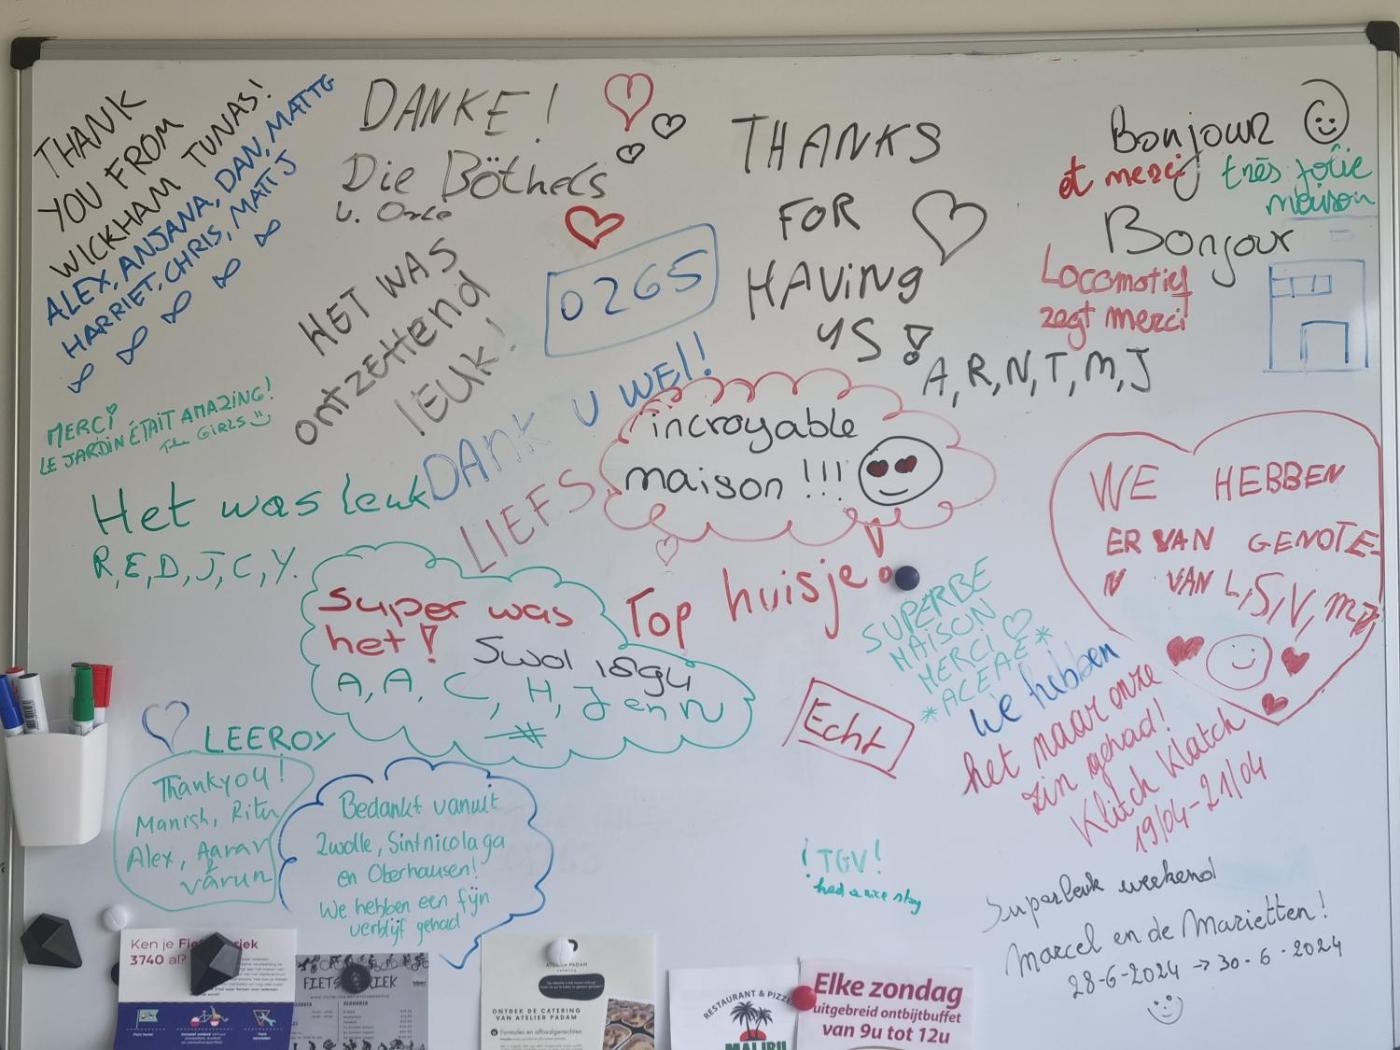 THANK
YOU FROM
WICKHAM TUNAS!
ALEX, ANJANA, DAN, MATT G
HARRIET, CHRIS, MATT J
DANKE!
Die Böthels
THANKS
FOR
HAVING
US!
A, R, N, T, M, J
Bonjour
et merci très jolie
maison
Bonjour
Locomotief
zegt merci
HET WAS
ontzettend
leuk!
0265
DANK U WEL!
LIEFS
MERCI
LE JARDIN ÉTAIT AMAZING!
The GIRLS
Het was leuk
R, E, D, J, C, Y.
incroyable
maison !!!
WE HEBBEN
ER VAN GENOTE-
N VAN L, S, V, M
Super was
het!
A, A, C, H, J en N
Top huisje!
SUPERBE
MAISON
MERCI
*ACEAE*
Echt
We hebben
het naar onze
zin gehad!
Klitch Klatch
19/04-21/04
LEEROY
Thankyou!
Manish, Ritu
Alex, Aarav
& varun
Bedankt vanuit
Zwolle, Sintnicolaga
en Oberhausen!
We hebben een fijn
verblijf gehad
! TGV!
had a nice stay
Superleuk weekend
Marcel en de Marietten!
28-6-2024 → 30-6-2024
Ken je
3740 al?
ATELIER PADAM
ONTDEK DE CATERING
VAN ATELIER PADAM
Formules en afhaalgerechten
RESTAURANT &
MALIBU
Elke zondag
uitgebreid ontbijtbuffet
van 9u tot 12u